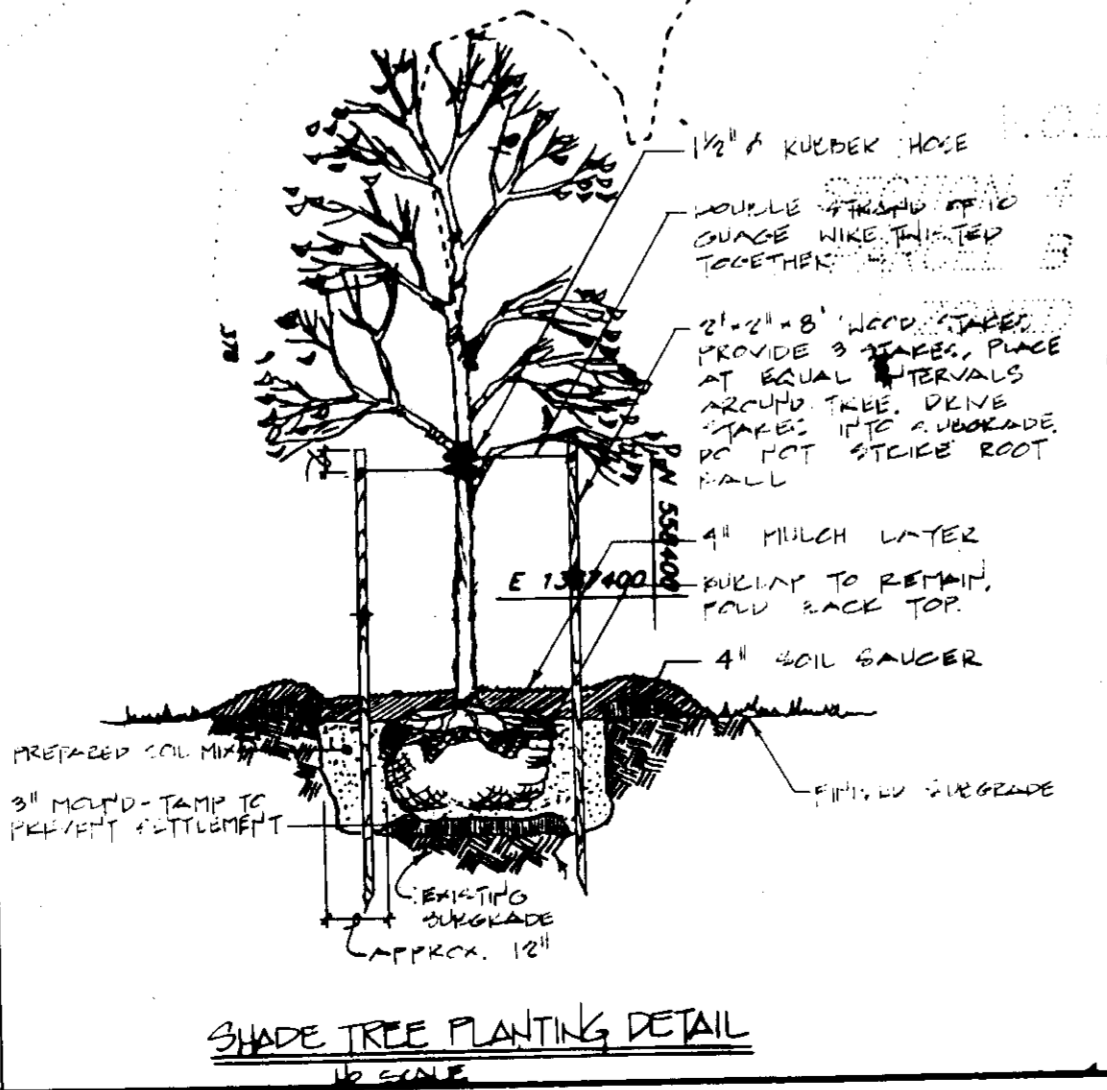 1½" ø RUBBER HOSE
DOUBLE STRAND OF 10
GUAGE WIRE TWISTED
TOGETHER
SECTION 4
2"x2"x8' WOOD STAKES
PROVIDE 3 STAKES, PLACE
AT EQUAL INTERVALS
AROUND TREE. DRIVE
STAKES INTO SUBGRADE.
DO NOT STRIKE ROOT
BALL
378
N 558400
E 1337400
4" MULCH LAYER
BURLAP TO REMAIN,
FOLD BACK TOP.
4" SOIL SAUCER
PREPARED SOIL MIX
3" MOUND-TAMP TO
PREVENT SETTLEMENT
FINISHED SUBGRADE
EXISTING
SUBGRADE
APPROX. 12"
SHADE TREE PLANTING DETAIL
NO SCALE